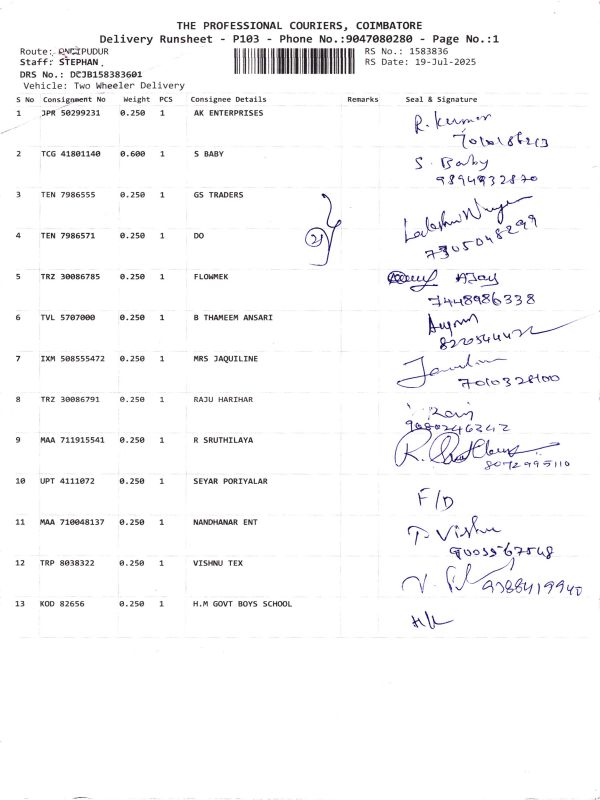 THE PROFESSIONAL COURIERS, COIMBATORE
Delivery Runsheet - P103 - Phone No.:9047080280 - Page No.:1
Route: PUDUR
RS No.: 1583836
Staff: STEPHAN
RS Date: 19-Jul-2025
DRS No.: DCJB158383601
Vehicle: Two Wheeler Delivery
S No Consignment No Weight PCS Consignee Details Remarks Seal & Signature
1 JPR 50299231 0.250 1 AK ENTERPRISES R. Kumar
2 TCG 41801140 0.600 1 S BABY S. Baby
9894932870
3 TEN 7986555 0.250 1 GS TRADERS
4 TEN 7986571 0.250 1 DO 2) 7305048299
5 TRZ 30086785 0.250 1 FLOWMEK AJay
7448986338
6 TVL 5707000 0.250 1 B THAMEEM ANSARI
7 IXM 508555472 0.250 1 MRS JAQUILINE
7010328100
8 TRZ 30086791 0.250 1 RAJU HARIHAR
9080246342
9 MAA 711915541 0.250 1 R SRUTHILAYA
8072995110
10 UPT 4111072 0.250 1 SEYAR PORIYALAR F/D
11 MAA 710048137 0.250 1 NANDHANAR ENT T. Vishnu
9003567548
12 TRP 8038322 0.250 1 VISHNU TEX 9388419940
13 KOD 82656 0.250 1 H.M GOVT BOYS SCHOOL